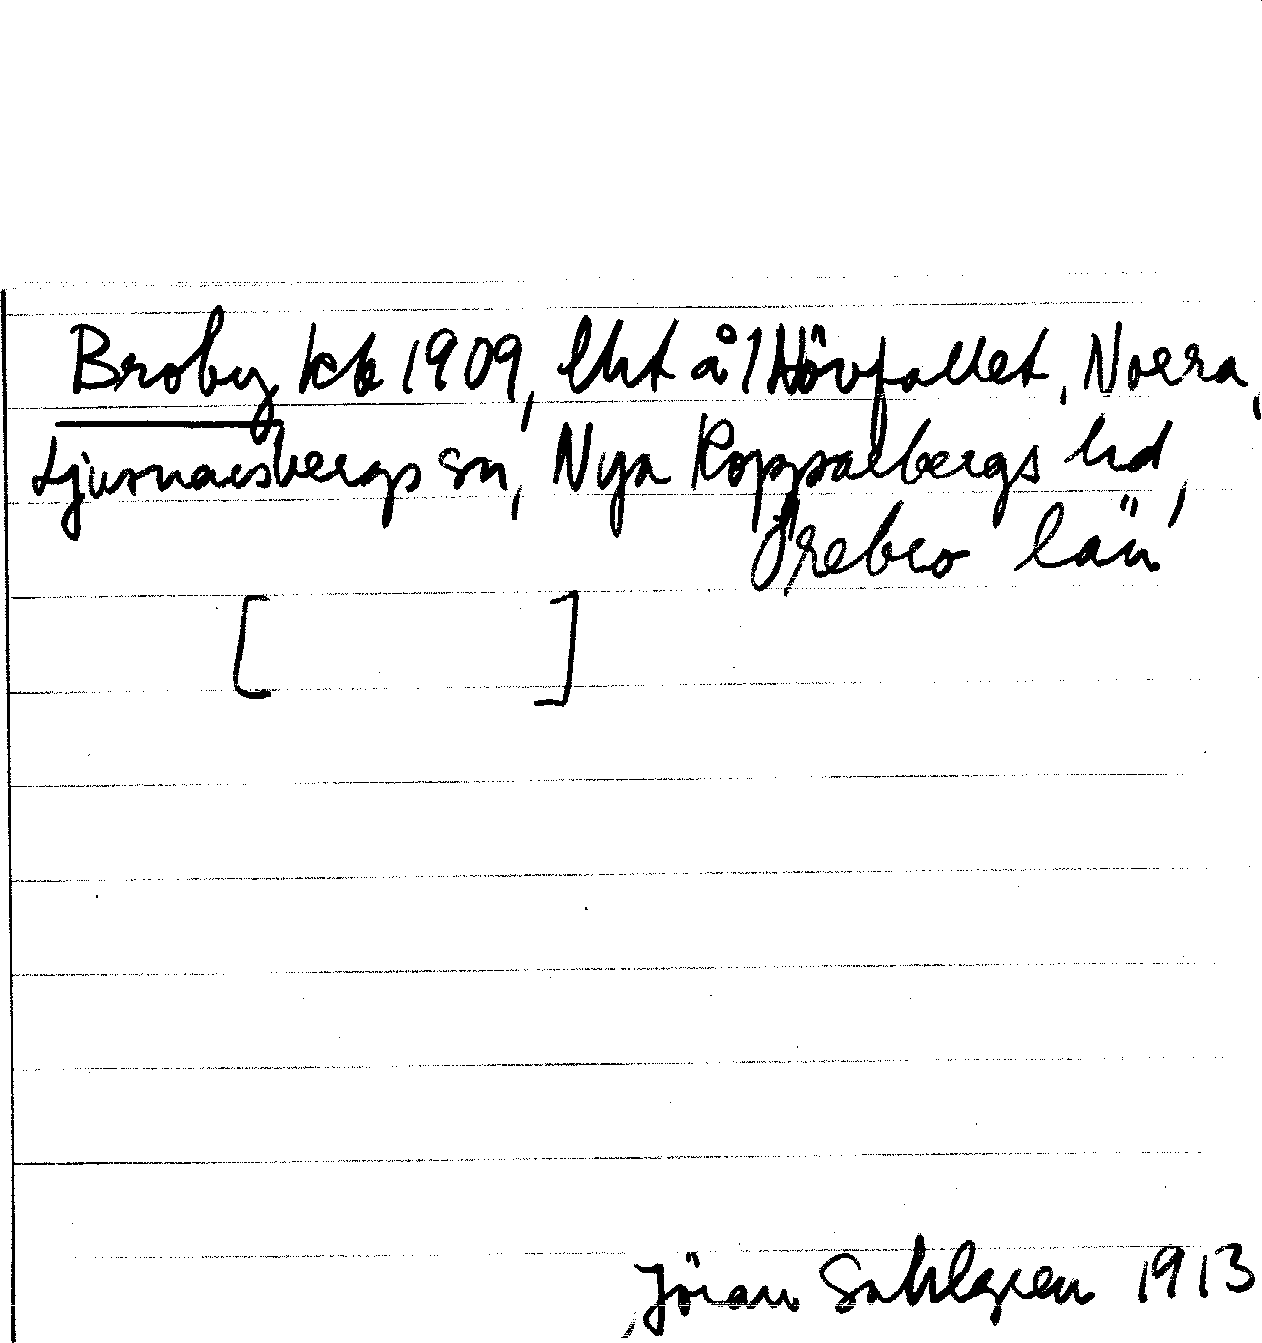 Broby kb 1909, lht å 1 Hövfallet, Norra,
Ljusnarsbergs sn, Nya Kopparbergs hd,
Örebro län
[ ]
Jöran Sahlgren 1913